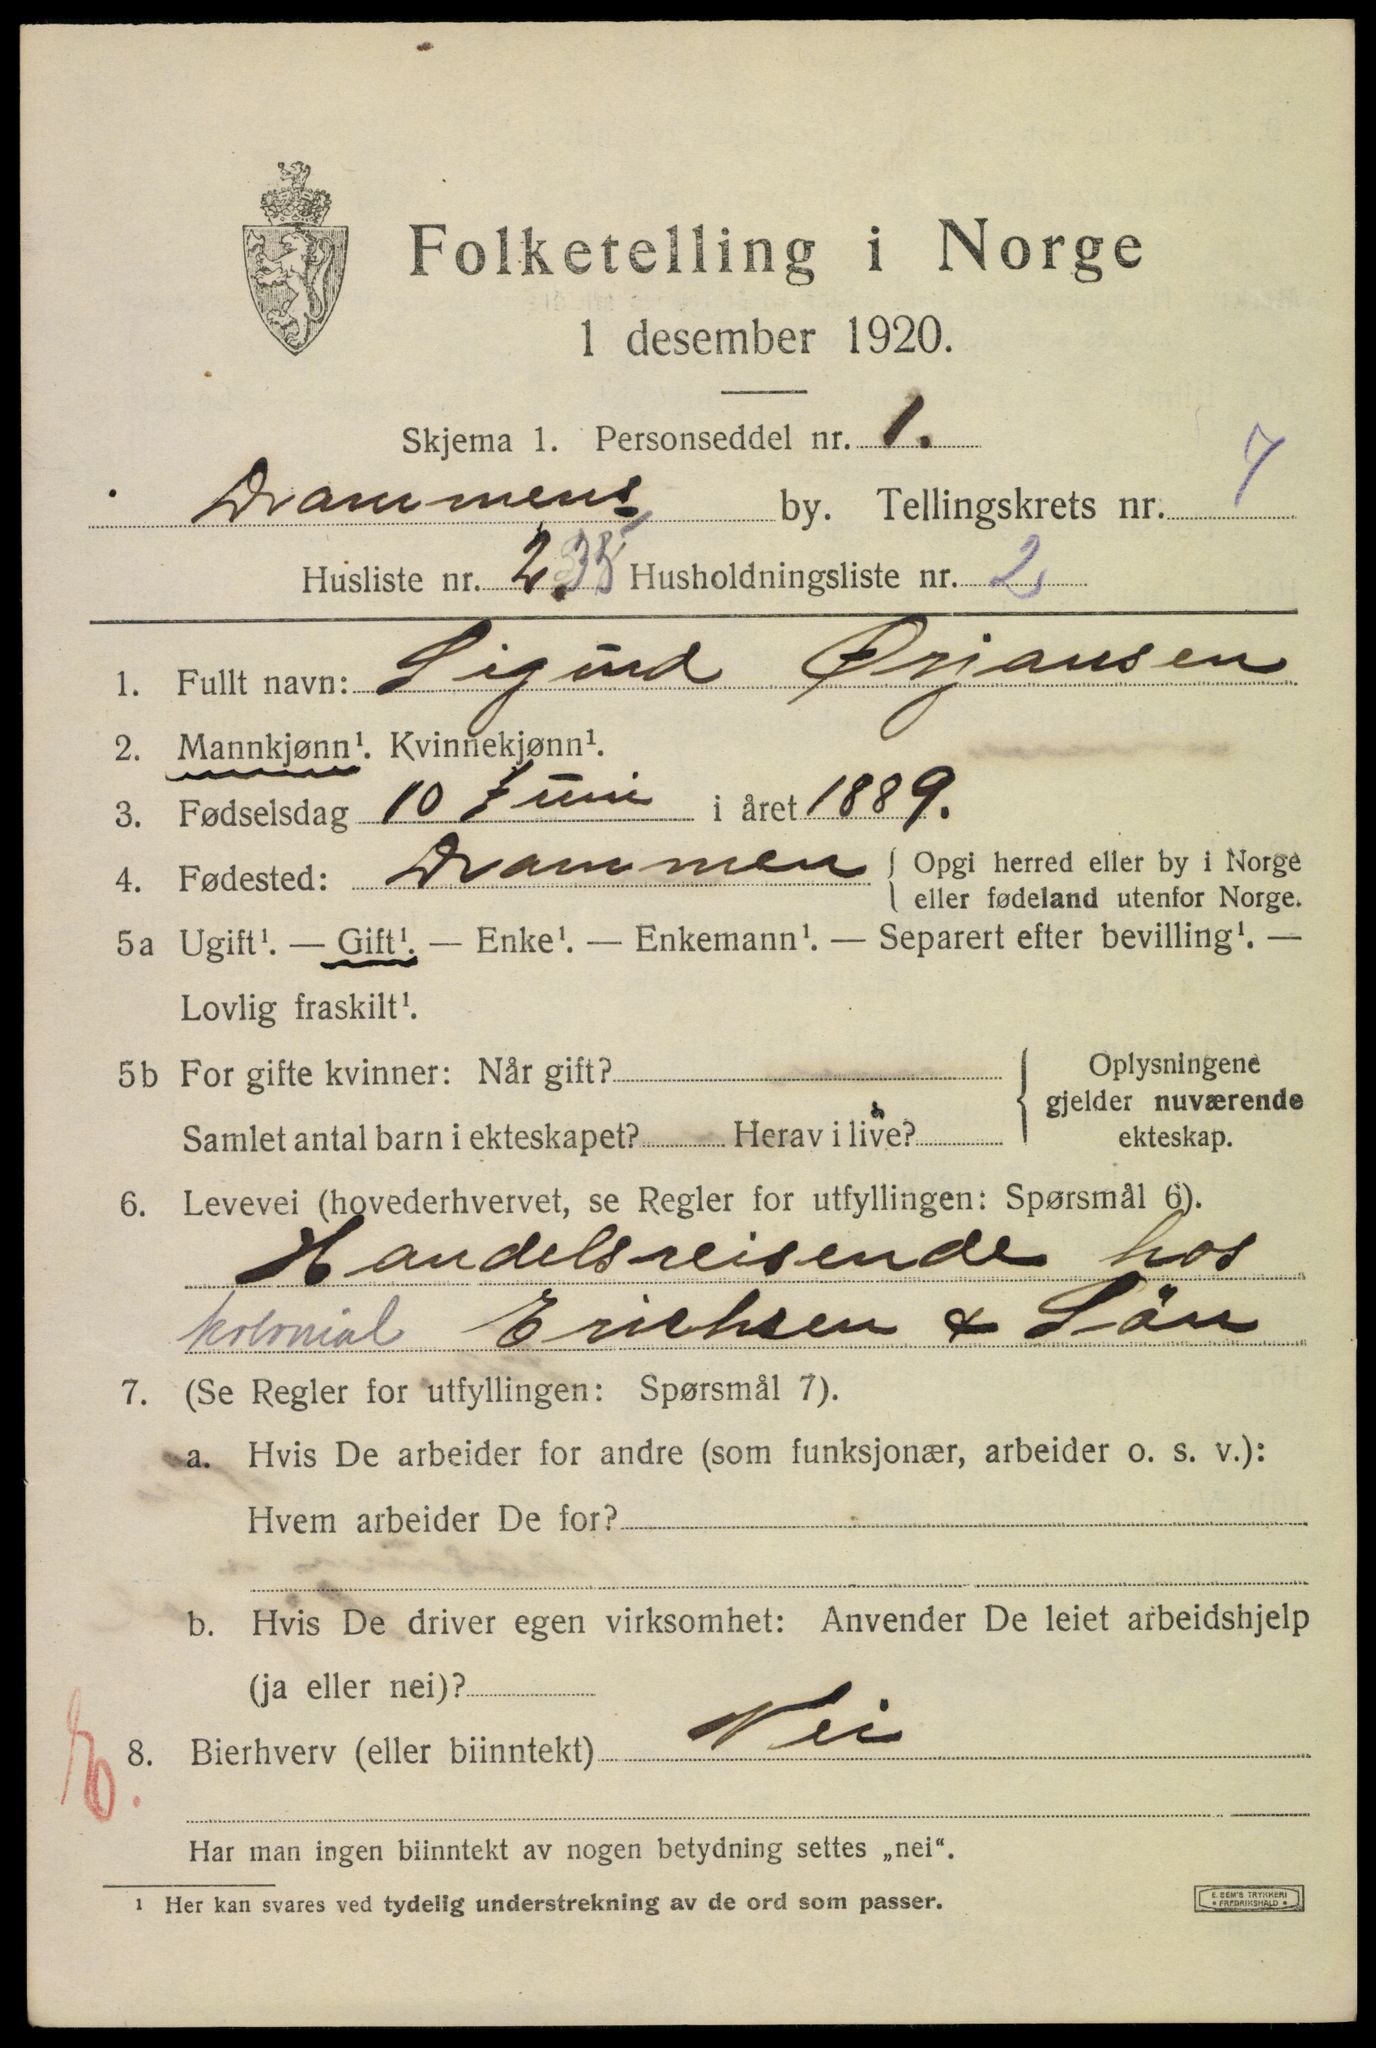 Folketelling i Norge
1 desember 1920.
Skjema 1. Personseddel nr. 1.
Drammens by. Tellingskrets nr. 7
Husliste nr. 2. 35 Husholdningsliste nr. 2
1. Fullt navn: Sigurd Ørjansen
2. Mannkjønn¹. Kvinnekjønn¹.
3. Fødselsdag 10 Juni i året 1889.
4. Fødested: Drammen { Opgi herred eller by i Norge
eller fødeland utenfor Norge.
5a Ugift¹. — Gift¹. — Enke¹. — Enkemann¹. — Separert efter bevilling¹. —
Lovlig fraskilt¹.
5b For gifte kvinner: Når gift? { Oplysningene
gjelder nuværende
Samlet antal barn i ekteskapet? Herav i live?
ekteskap.
6. Levevei (hovederhvervet, se Regler for utfyllingen: Spørsmål 6).
Handelsreisende hos
kolonial Erichsen & Sön
7. (Se Regler for utfyllingen: Spørsmål 7).
a. Hvis De arbeider for andre (som funksjonær, arbeider o. s. v.):
Hvem arbeider De for?
b. Hvis De driver egen virksomhet: Anvender De leiet arbeidshjelp
(ja eller nei)?
8. Bierhverv (eller biinntekt) Nei
Har man ingen biinntekt av nogen betydning settes „nei“.
¹ Her kan svares ved tydelig understrekning av de ord som passer.
E. SEM'S TRYKKERI
• FREDRIKSHALD •